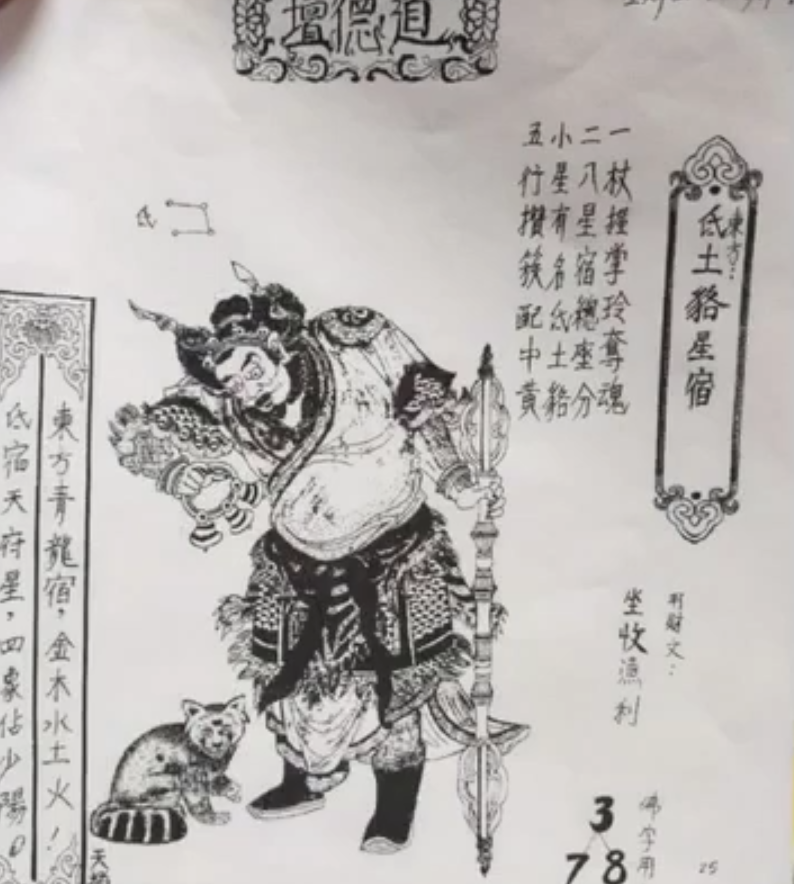 道德壇
東方：
氐土貉星宿
一杖握掌玲奪魂
二八星宿總座分
小星有名氐土貉
五行攢簇配中黃
氐
財文：
坐收漁利
佛字用
3
7 8
25
東方青龍宿，金木水土火！
氐宿天府星，四象佔少陽。
天